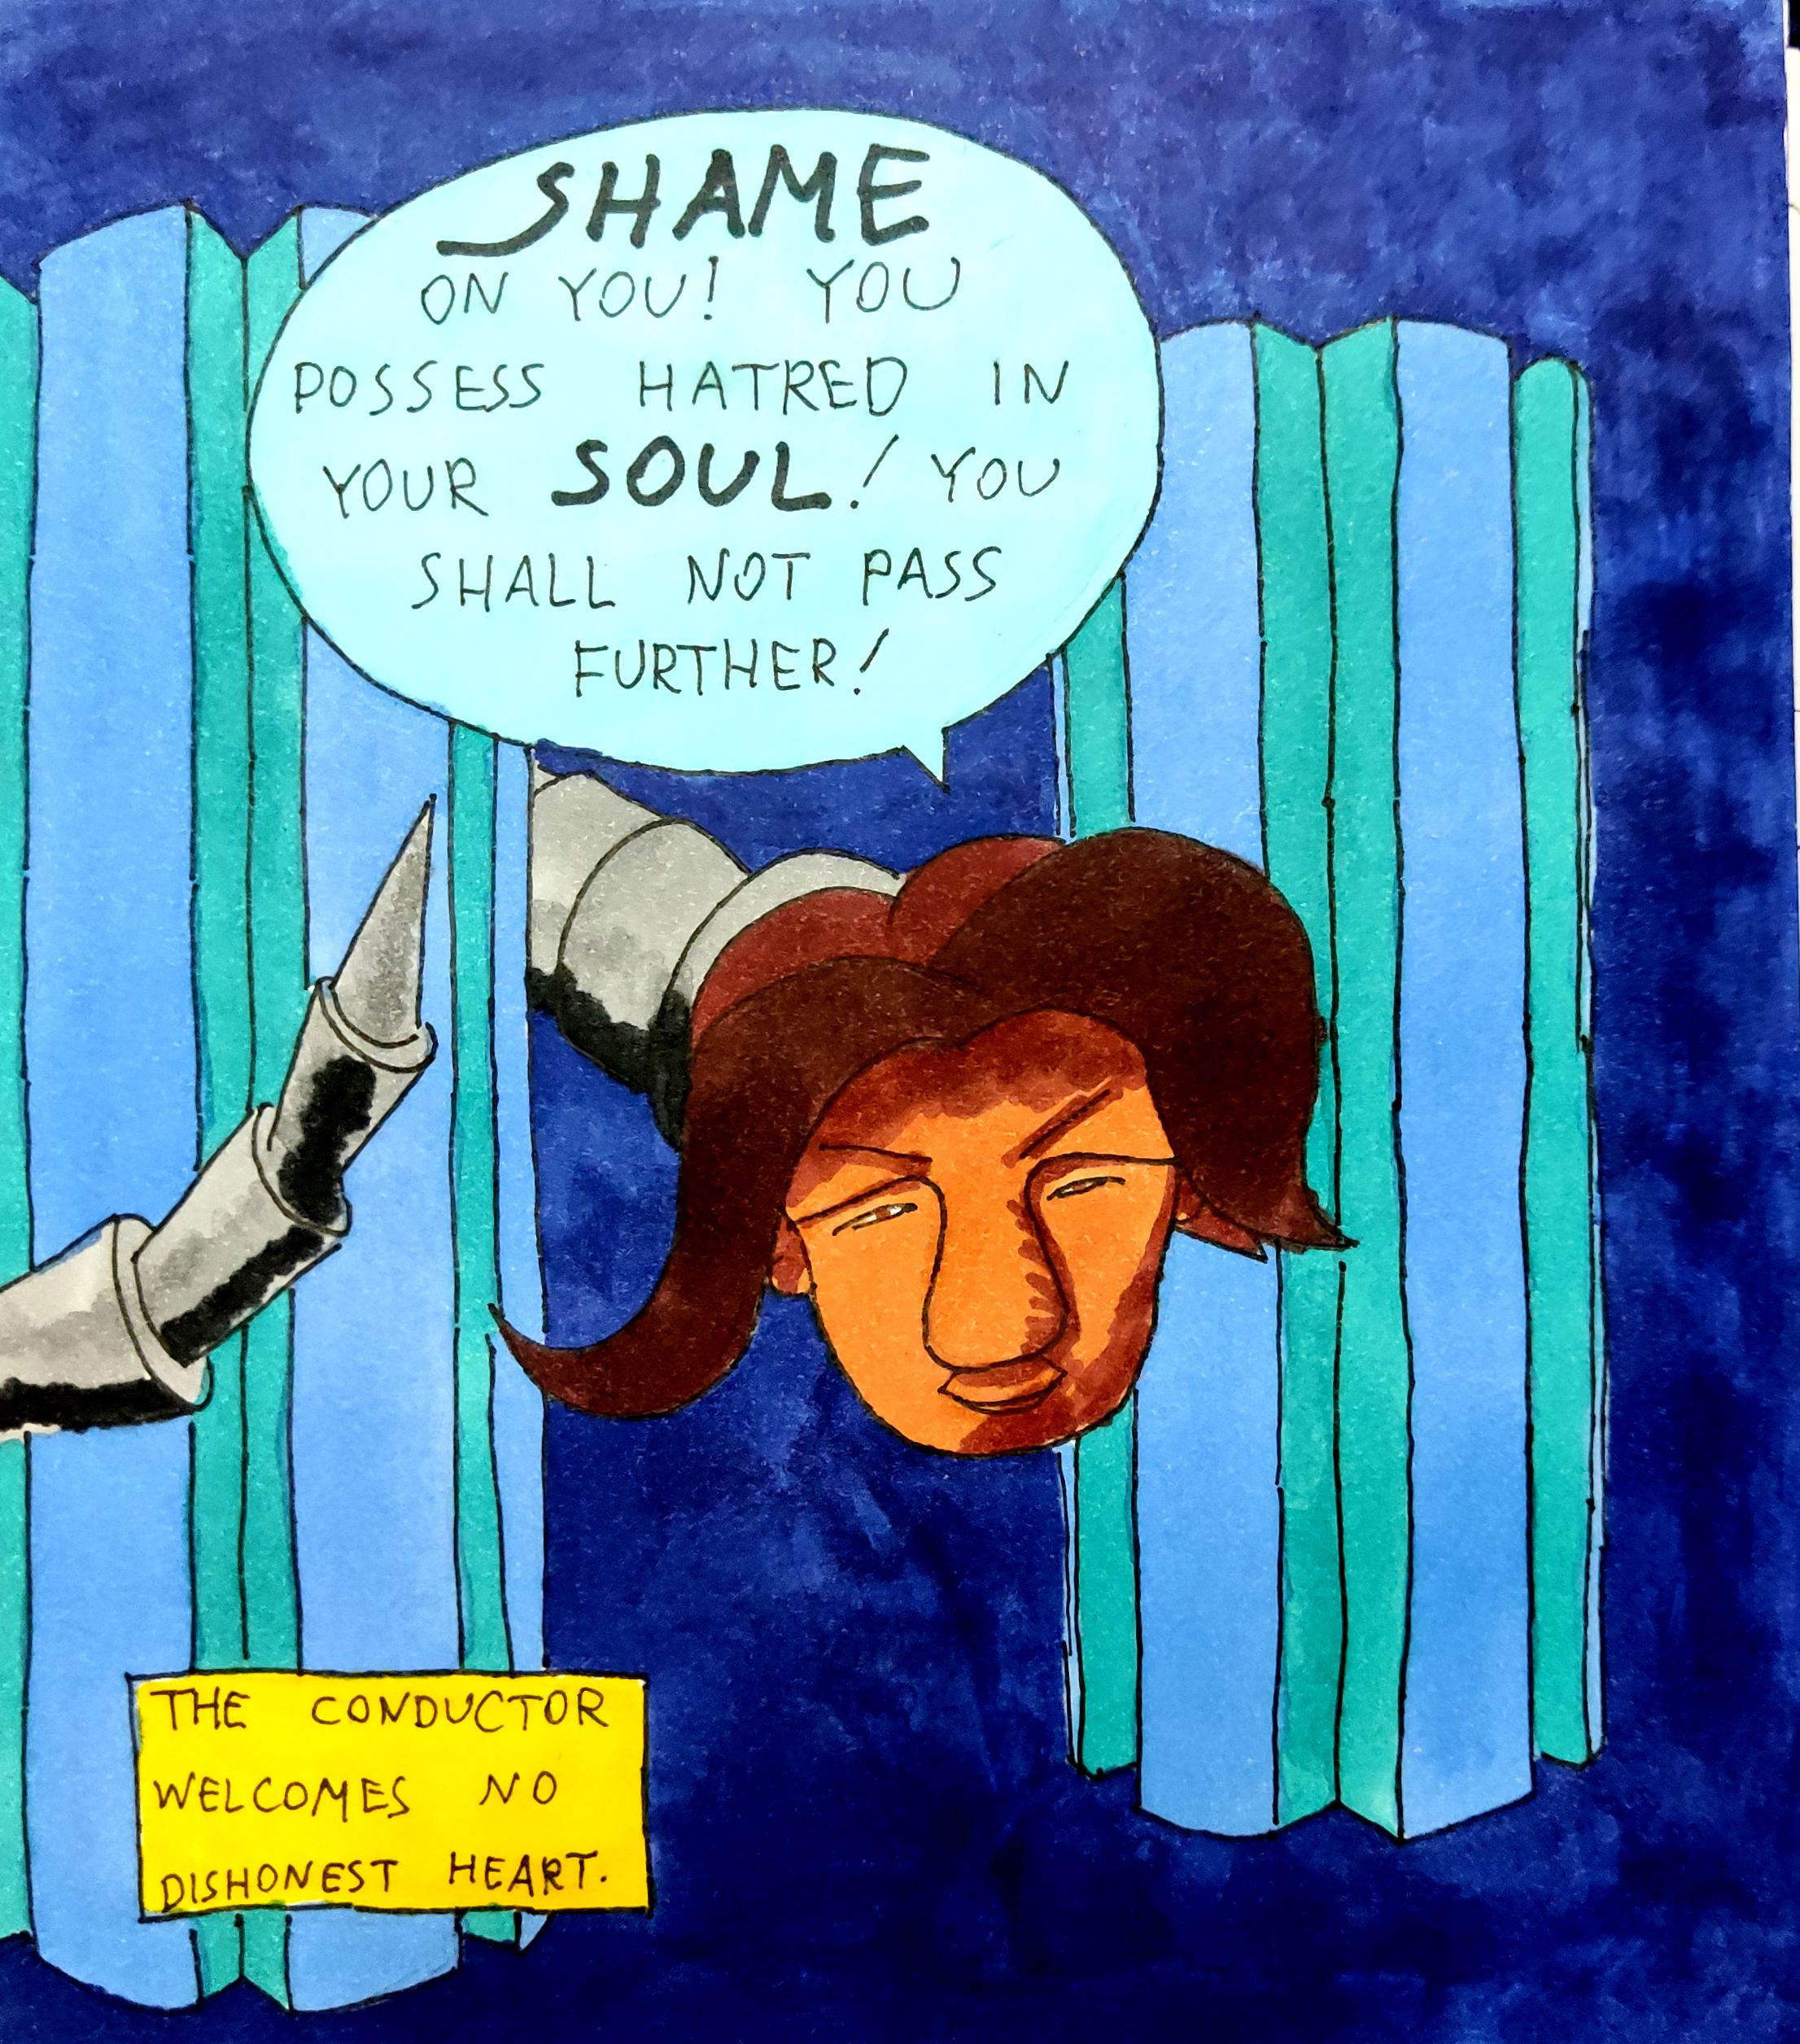 SHAME
ON YOU! YOU
POSSESS HATRED IN
YOUR SOUL! YOU
SHALL NOT PASS
FURTHER!
THE CONDUCTOR
WELCOMES NO
DISHONEST HEART.